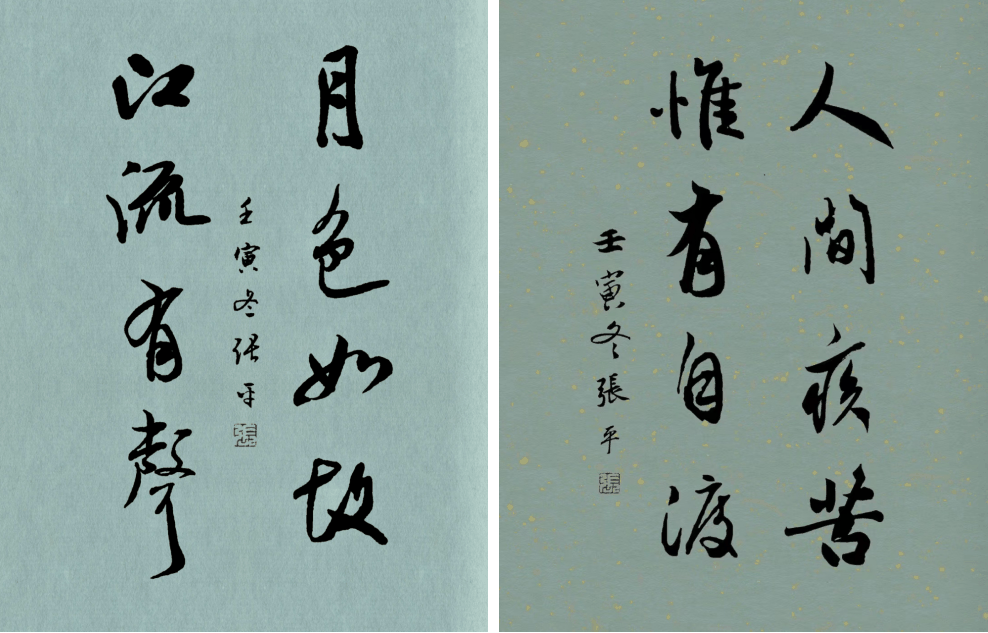 月色如故
江流有聲
壬寅冬張平
人間疾苦
惟有自渡
壬寅冬張平